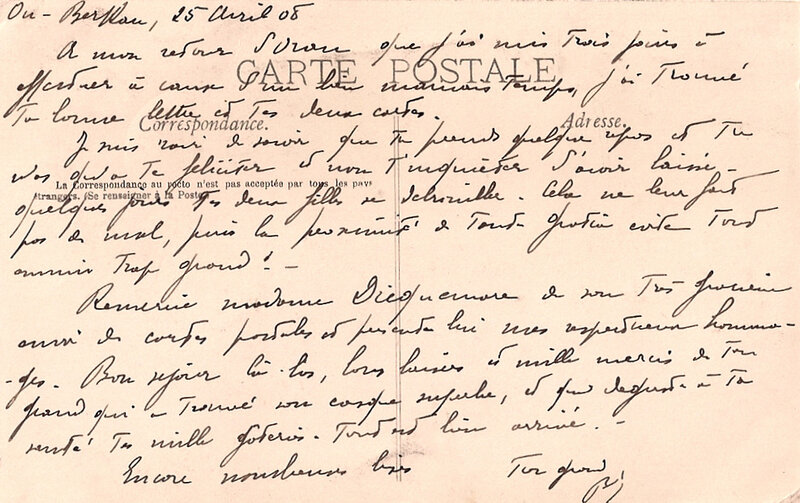 25 Avril 08
A mon retour d'Oran que j'ai mis trois jours à
effectuer à cause d'un bien mauvais temps, j'ai trouvé
CARTE POSTALE
Ta bonne lettre et tes deux cartes.
Correspondance. Adresse.
Je suis ravi de savoir que tu prends quelque repos et tu
n'as qu'à te féliciter et non t'inquiéter d'avoir laissé
La Correspondance au recto n'est pas acceptée par tous les pays
étrangers. (Se renseigner à la Poste)
quelques jours tes deux filles se . Cela ne leur fait
pas de mal, puis la proximité de Tante évite tout
ennui trop grand! -
Remercie madame Dicquemare de son très gracieux
envoi de cartes postales et présente lui mes respectueux homma-
-ges. Bon séjour là-bas, bons baisers et mille mercis de ton
grand qui a trouvé son casque superbe, et qui déguste à ta
santé tes mille . Tout est bien arrivé. -
Encore bises Ton grand